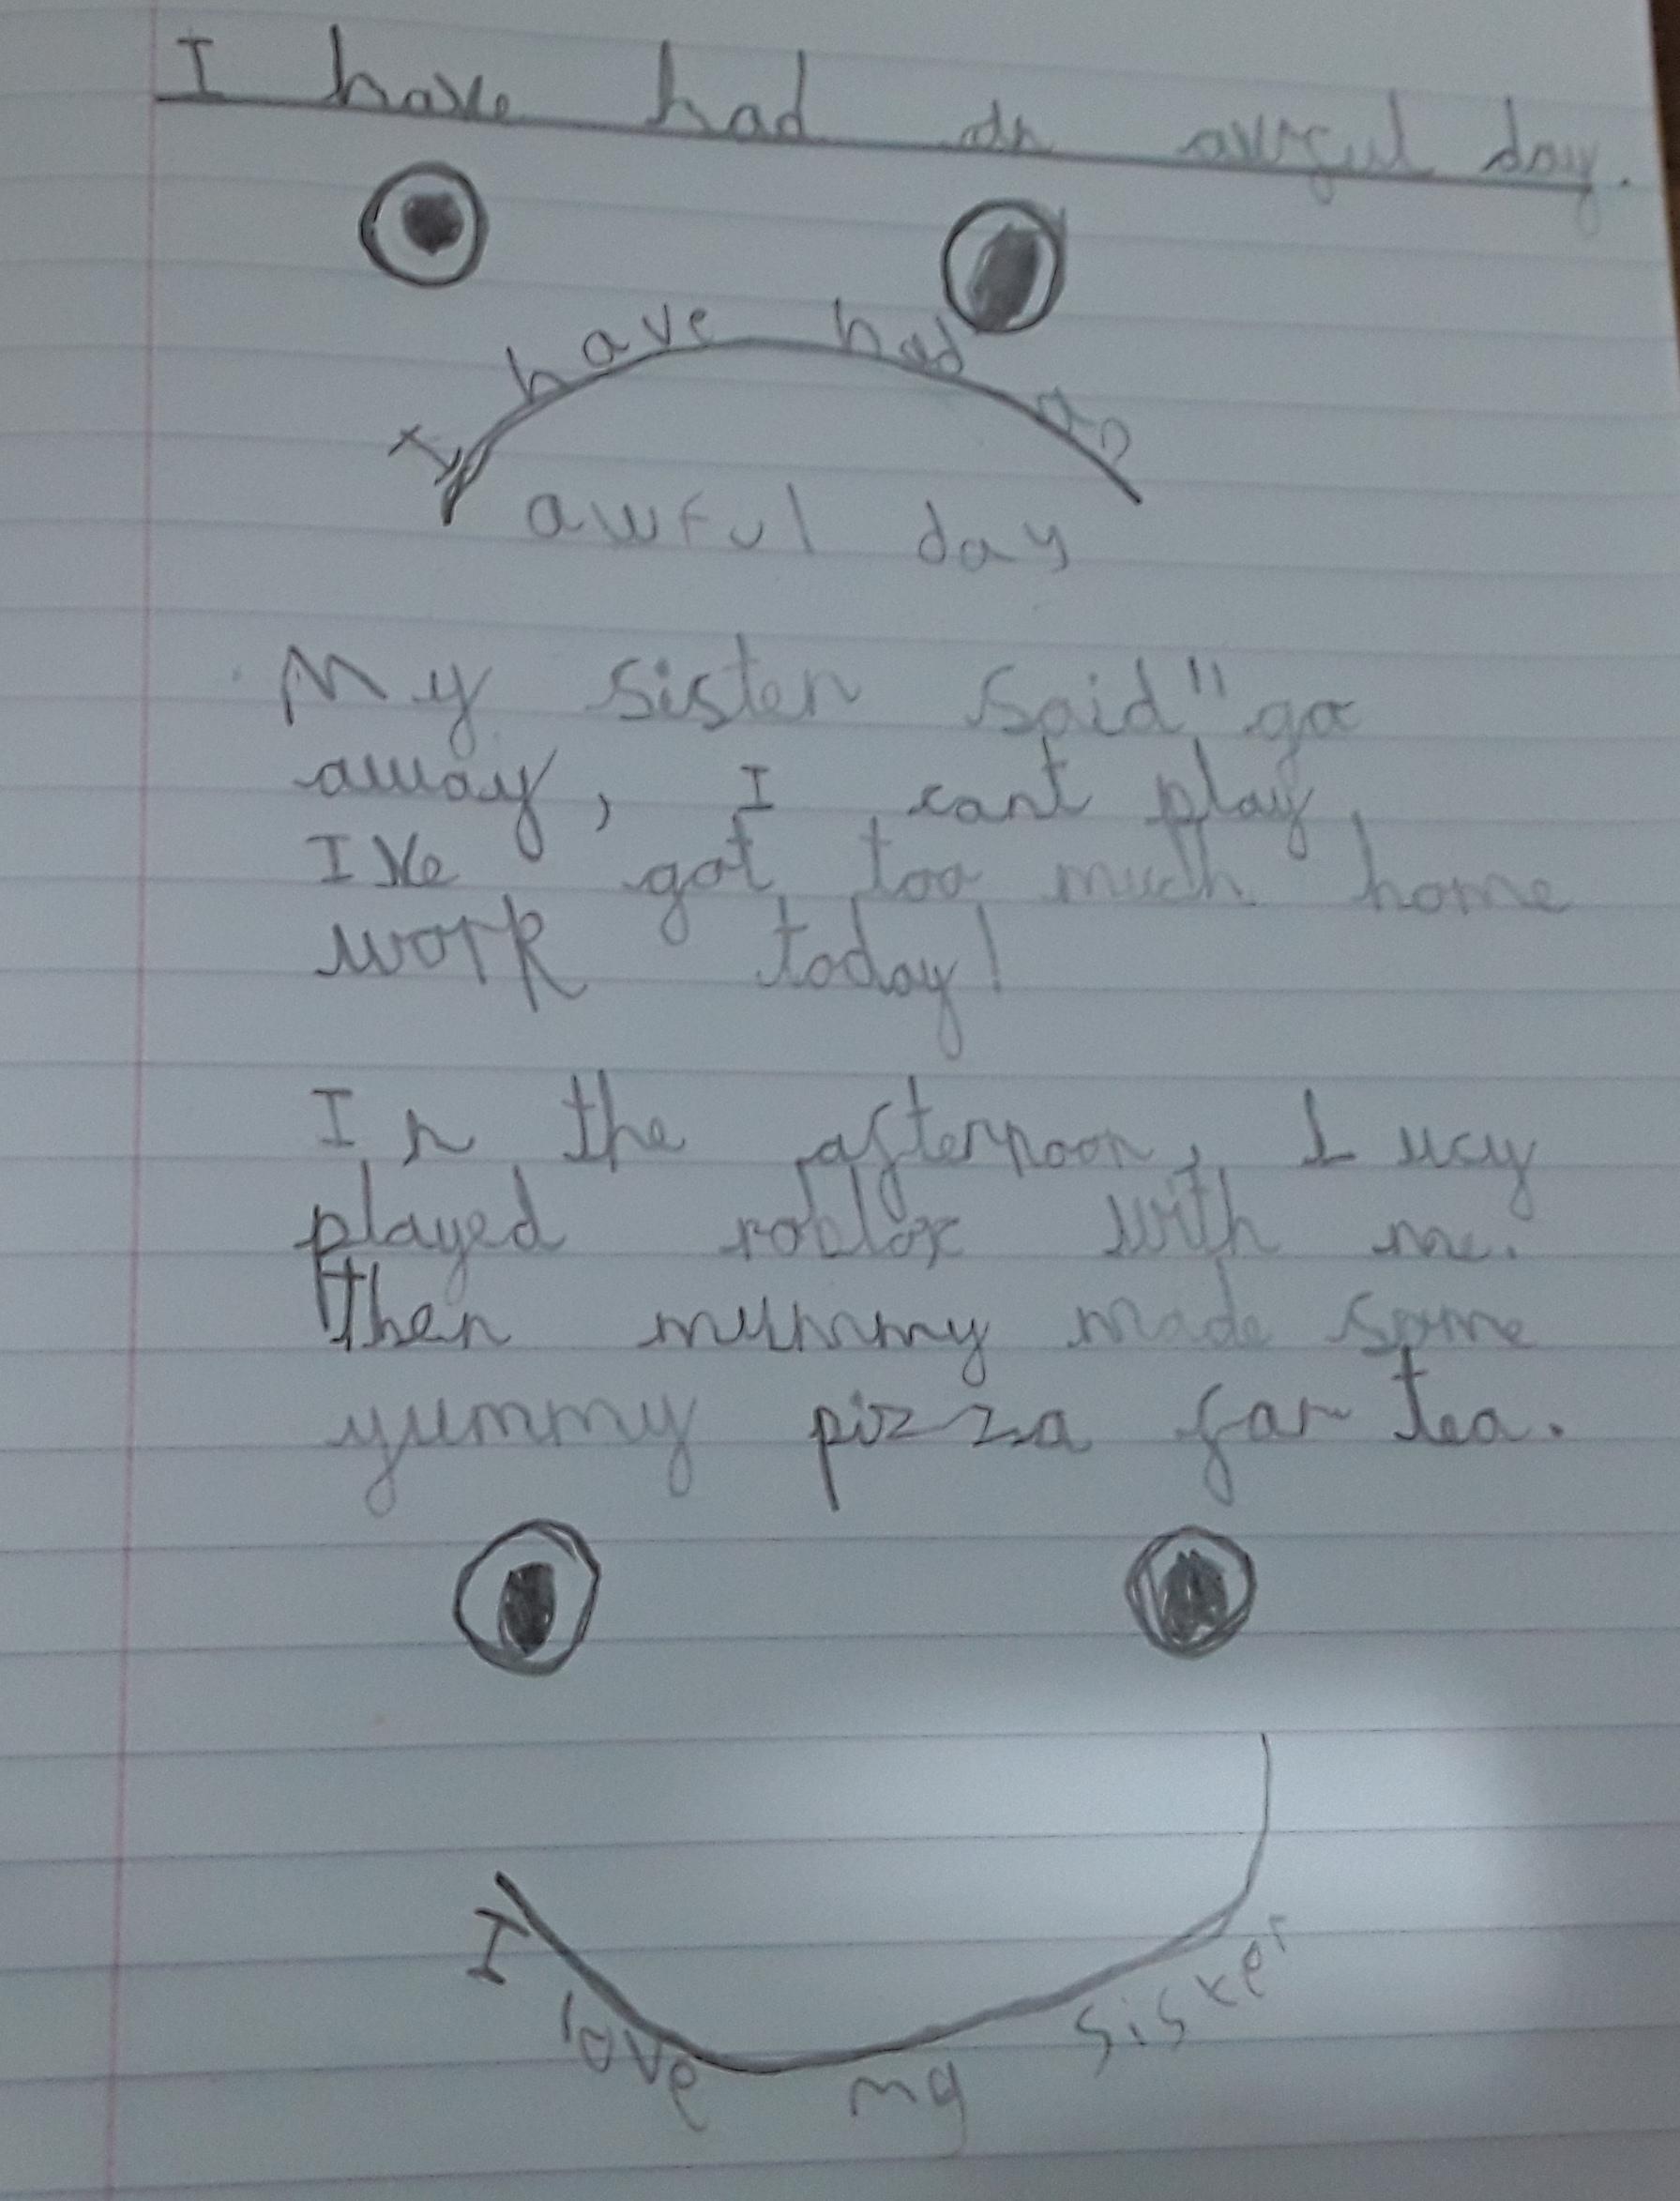 I have had an awful day.
I have had an
awful day
My sister said" go
away, I cant play,
Ive got too much home
work today!
In the afternoon, Lucy
played roblox with me.
Then mummy made some
yummy pizza for tea.
I love my sister